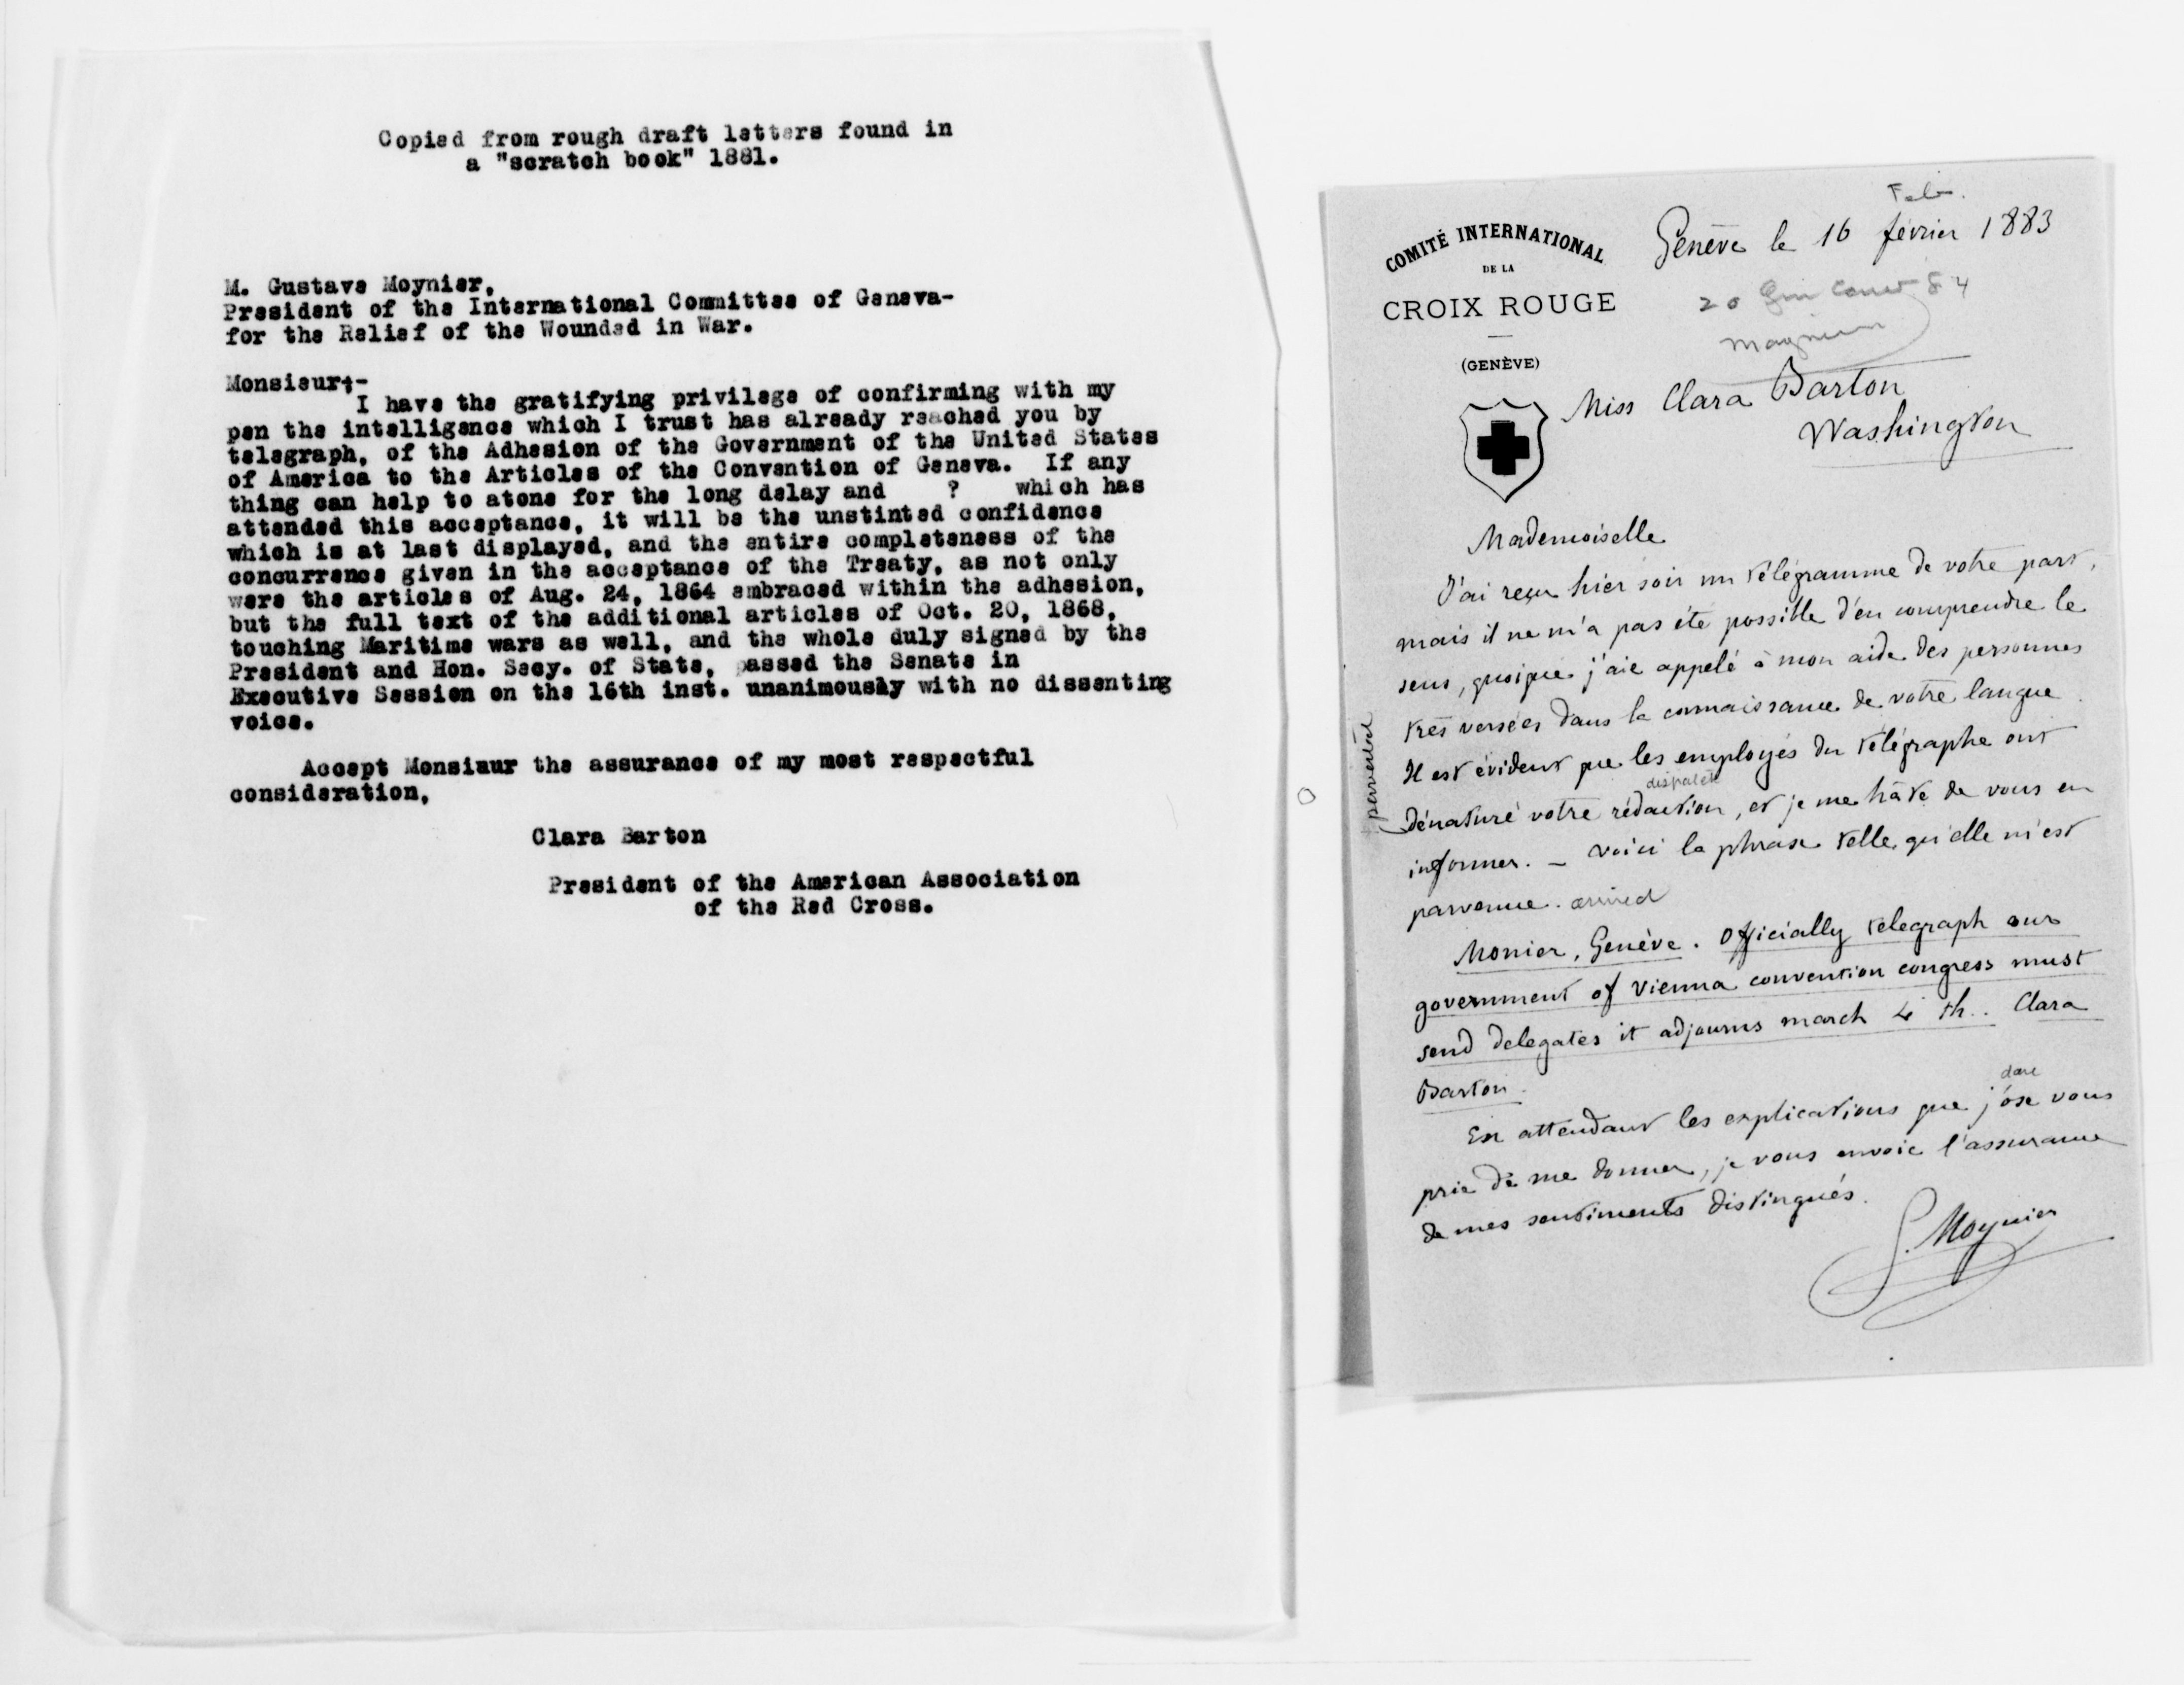 Copied from rough draft letters found in
a "scratch book" 1881.
M. Gustave Moynier,
President of the International Committee of Geneva-
for the Relief of the Wounded in War.
Monsieur:-
I have the gratifying privilege of confirming with my
pen the intelligence which I trust has already reached you by
telegraph, of the Adhesion of the Government of the United States
of America to the Articles of the Convention of Geneva. If any
thing can help to atone for the long delay and ? which has
attended this acceptance, it will be the unstinted confidence
which is at last displayed, and the entire completeness of the
concurrence given in the acceptance of the Treaty, as not only
were the articles of Aug. 24, 1864 embraced within the adhesion,
but the full text of the additional articles of Oct. 20, 1868,
touching Maritime wars as well, and the whole duly signed by the
President and Hon. Secy. of State, passed the Senate in
Executive Session on the 16th inst. unanimously with no dissenting
voice.
Accept Monsieur the assurance of my most respectful
consideration,
Clara Barton
President of the American Association
of the Red Cross.
Feb.
COMITÉ INTERNATIONAL
DE LA
CROIX ROUGE
(GENÈVE)
Genève le 16 février 1883
20
84
Moynier
Miss Clara Barton
Washington
Mademoiselle
J'ai reçu hier soir un télégramme de votre part,
mais il ne m'a pas été possible d'en comprendre le
sens, quoique j'aie appelé à mon aide des personnes
très versées dans la connaissance de votre langue.
Il est évident que les employés du télégraphe ont
dispatch
dénaturé votre rédaction, et je me hâte de vous en
informer. – Voici la phrase telle qu'elle m'est
parvenue. arrived
Monier, Genève. Officially telegraph our
government of Vienna convention congress must
send delegates it adjourns march 4 th.. Clara
Barton.
dare
En attendant les explications que j'ose vous
prie de me donner, je vous envoie l'assurance
de mes sentiments distingués.
G. Moynier